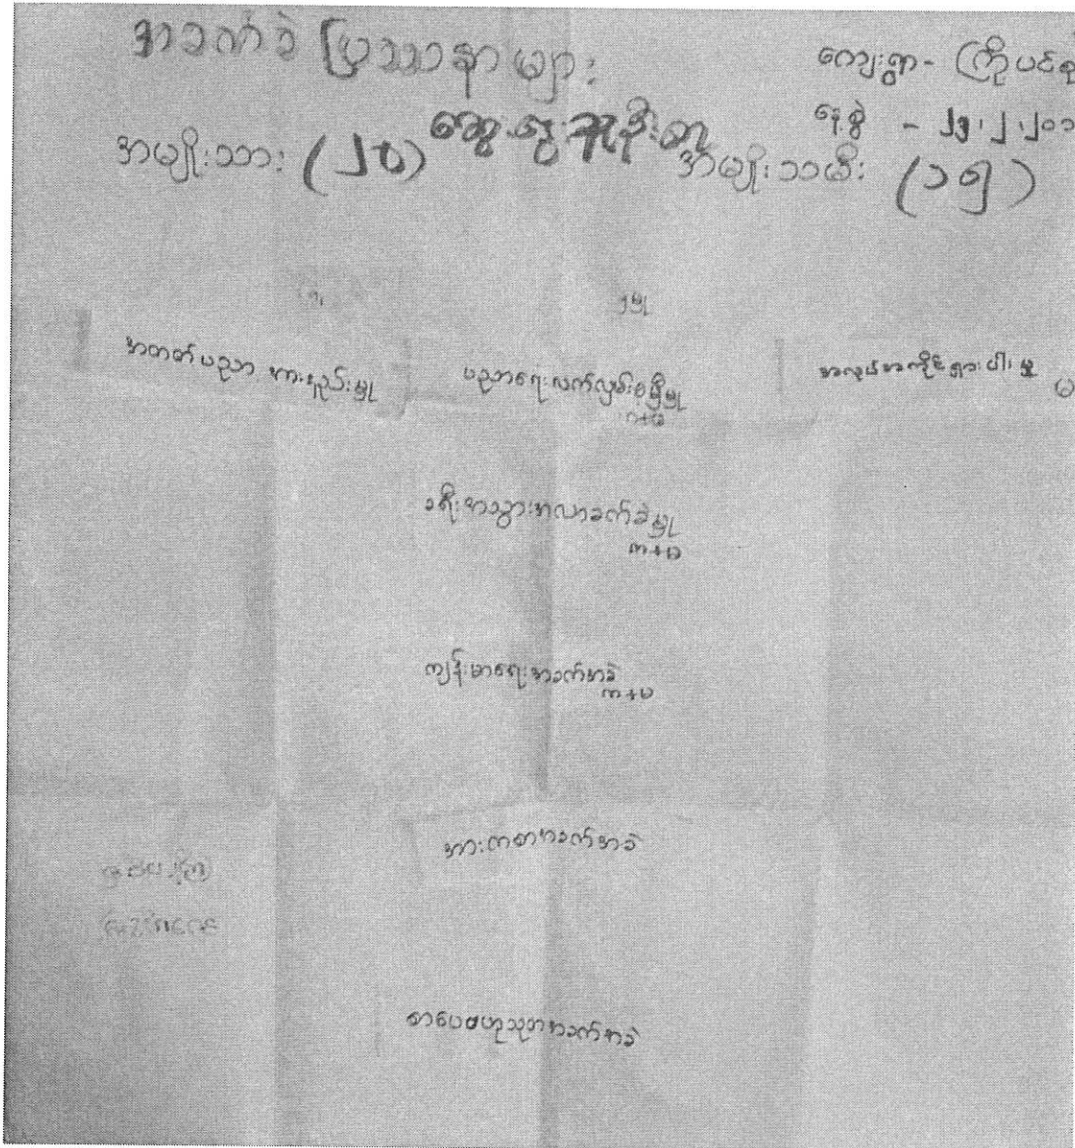 အခက်ခဲ ပြဿနာများ
ကျေးရွာ - ကြို့ပင်
နေ့စွဲ - ၂၅.၂.၂၀၁
ဆွေးနွေးသူဦးရေ
အမျိုးသား (၂၀) အမျိုးသမီး (၁၅)
အတတ်ပညာ အားနည်းမှု
ပညာရေးလက်လှမ်းမှီမှု
က+မ
အလုပ်အကိုင်ရှားပါးမှု
မ
ခရီးအသွားအလာခက်ခဲမှု
က+မ
ကျန်းမာရေးအခက်အခဲ
က+မ
အားကစားအခက်အခဲ
စာပေဗဟုသုတအခက်အခဲ